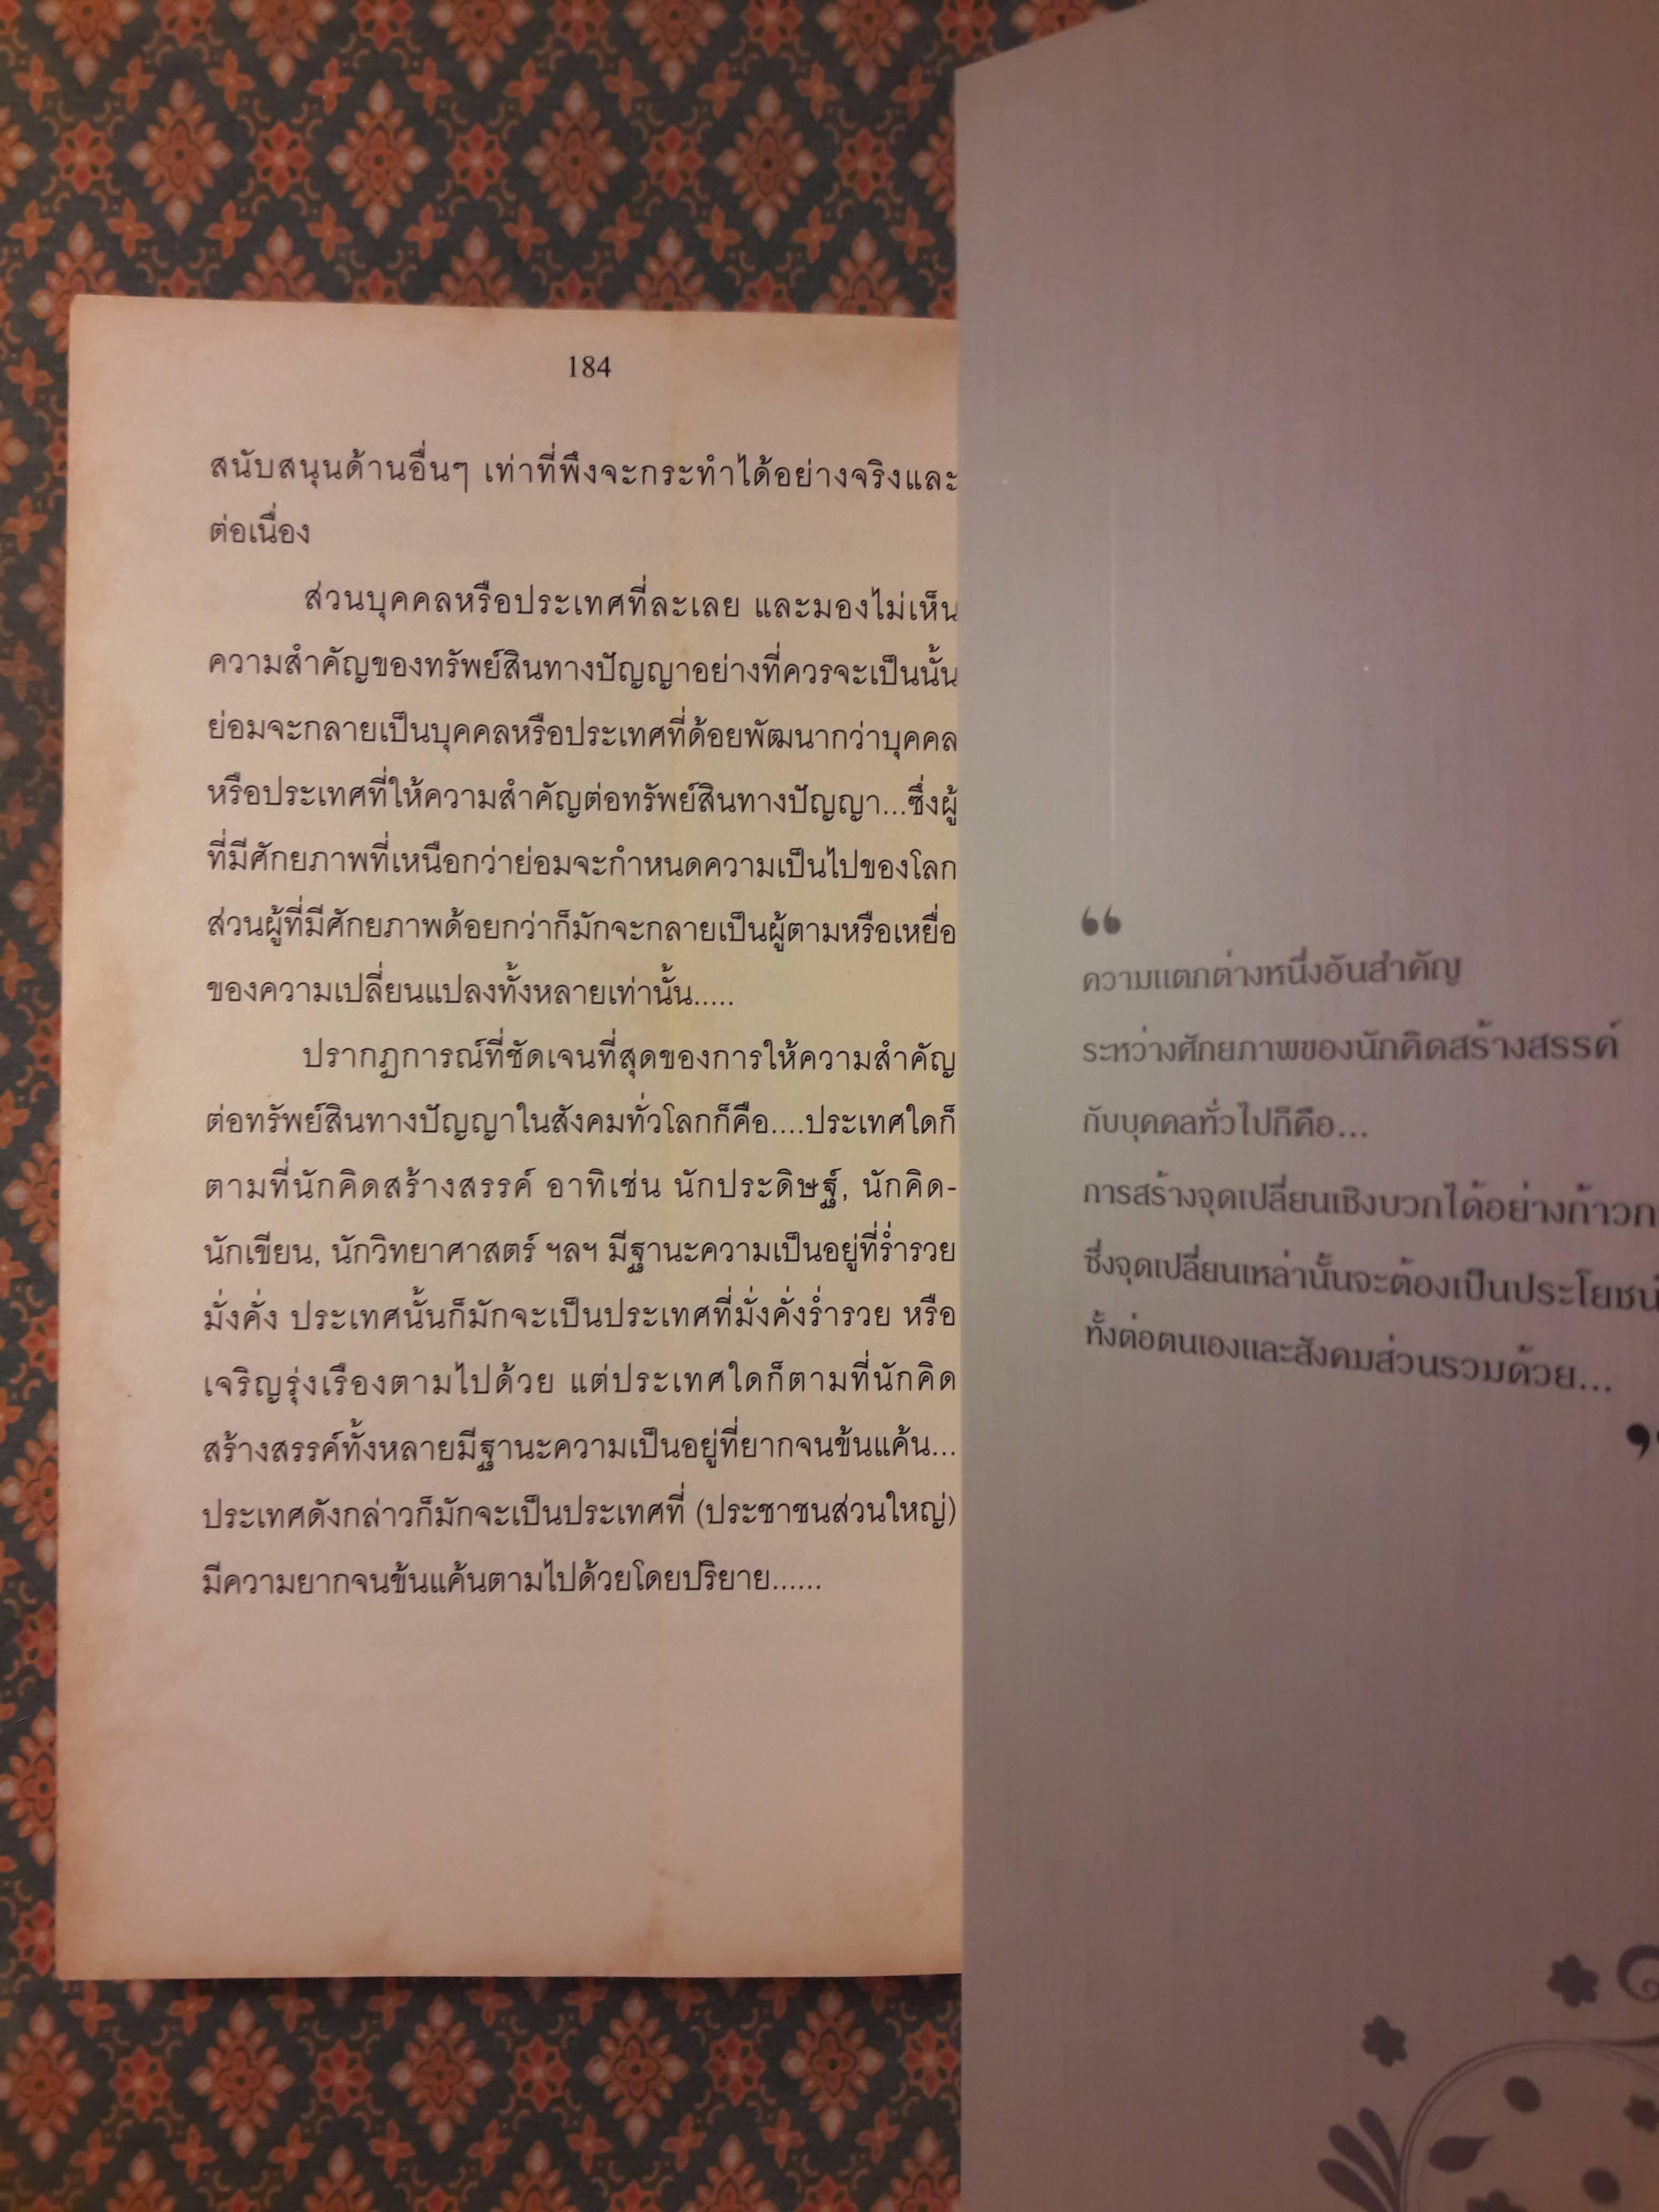 184
สนับสนุนด้านอื่นๆ เท่าที่พึงจะกระทำได้อย่างจริงและ
ต่อเนื่อง
ส่วนบุคคลหรือประเทศที่ละเลย และมองไม่เห็น
ความสำคัญของทรัพย์สินทางปัญญาอย่างที่ควรจะเป็นนั้น
ย่อมจะกลายเป็นบุคคลหรือประเทศที่ด้อยพัฒนากว่าบุคคล
หรือประเทศที่ให้ความสำคัญต่อทรัพย์สินทางปัญญา...ซึ่งผู้
ที่มีศักยภาพที่เหนือกว่าย่อมจะกำหนดความเป็นไปของโลก
ส่วนผู้ที่มีศักยภาพด้อยกว่าก็มักจะกลายเป็นผู้ตามหรือเหยื่อ
ของความเปลี่ยนแปลงทั้งหลายเท่านั้น.....
ปรากฏการณ์ที่ชัดเจนที่สุดของการให้ความสำคัญ
ต่อทรัพย์สินทางปัญญาในสังคมทั่วโลกก็คือ....ประเทศใดก็
ตามที่นักคิดสร้างสรรค์ อาทิเช่น นักประดิษฐ์, นักคิด-
นักเขียน, นักวิทยาศาสตร์ ฯลฯ มีฐานะความเป็นอยู่ที่ร่ำรวย
มั่งคั่ง ประเทศนั้นก็มักจะเป็นประเทศที่มั่งคั่งร่ำรวย หรือ
เจริญรุ่งเรืองตามไปด้วย แต่ประเทศใดก็ตามที่นักคิด
สร้างสรรค์ทั้งหลายมีฐานะความเป็นอยู่ที่ยากจนข้นแค้น...
ประเทศดังกล่าวก็มักจะเป็นประเทศที่ (ประชาชนส่วนใหญ่)
มีความยากจนข้นแค้นตามไปด้วยโดยปริยาย......
“
ความแตกต่างหนึ่งอันสำคัญ
ระหว่างศักยภาพของนักคิดสร้างสรรค์
กับบุคคลทั่วไปก็คือ...
การสร้างจุดเปลี่ยนเชิงบวกได้อย่าง
ซึ่งจุดเปลี่ยนเหล่านั้นจะต้องเป็นประโยชน์
ทั้งต่อตนเองและสังคมส่วนรวมด้วย...
”